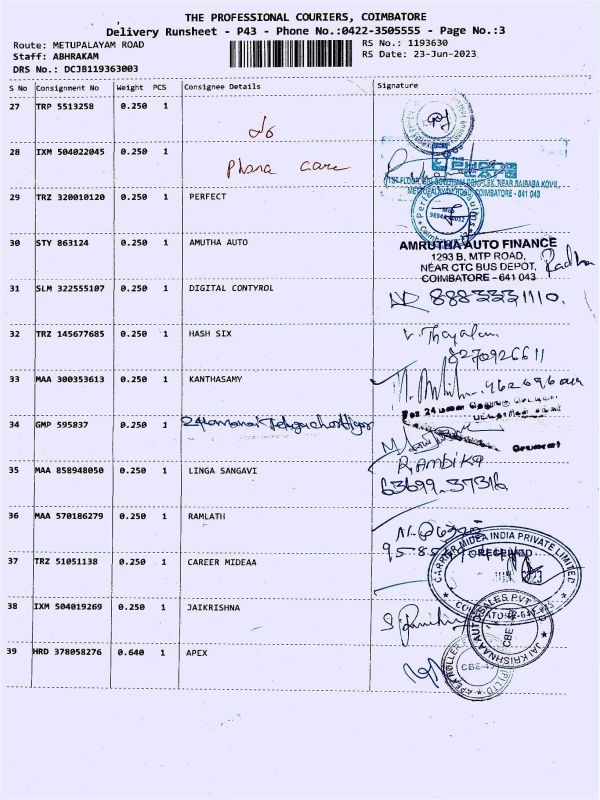 THE PROFESSIONAL COURIERS, COIMBATORE
Delivery Runsheet - P43 - Phone No.:0422-3505555 - Page No.:3
Route: METUPALAYAM ROAD
RS No.: 1193630
Staff: ABHRAKAM
RS Date: 23-Jun-2023
DRS No.: DCJB119363003
S No Consignment No Weight PCS Consignee Details Signature
27 TRP 5513258 0.250 1
28 IXM 504022045 0.250 1 phona care
29 TRZ 320010120 0.250 1 PERFECT
30 STY 863124 0.250 1 AMUTHA AUTO
AMRUTHA AUTO FINANCE
1293 B, MTP ROAD,
NEAR CTC BUS DEPOT,
COIMBATORE - 641 043
Radha
31 SLM 322555107 0.250 1 DIGITAL CONTYROL
32 TRZ 145677685 0.250 1 HASH SIX
V. Thayalan
8270926611
33 MAA 300353613 0.250 1 KANTHASAMY
34 GMP 595837 0.250 1
35 MAA 858948050 0.250 1 LINGA SANGAVI
R. Ambika
63699-37316
36 MAA 570186279 0.250 1 RAMLATH
37 TRZ 51051138 0.250 1 CAREER MIDEAA
CARRIER MIDEA INDIA PRIVATE LIMITED
RECEIVED
38 IXM 504019269 0.250 1 JAIKRISHNA
JAI KRISHNAA AUTO SALES PVT
CBE
39 HRD 378058276 0.640 1 APEX